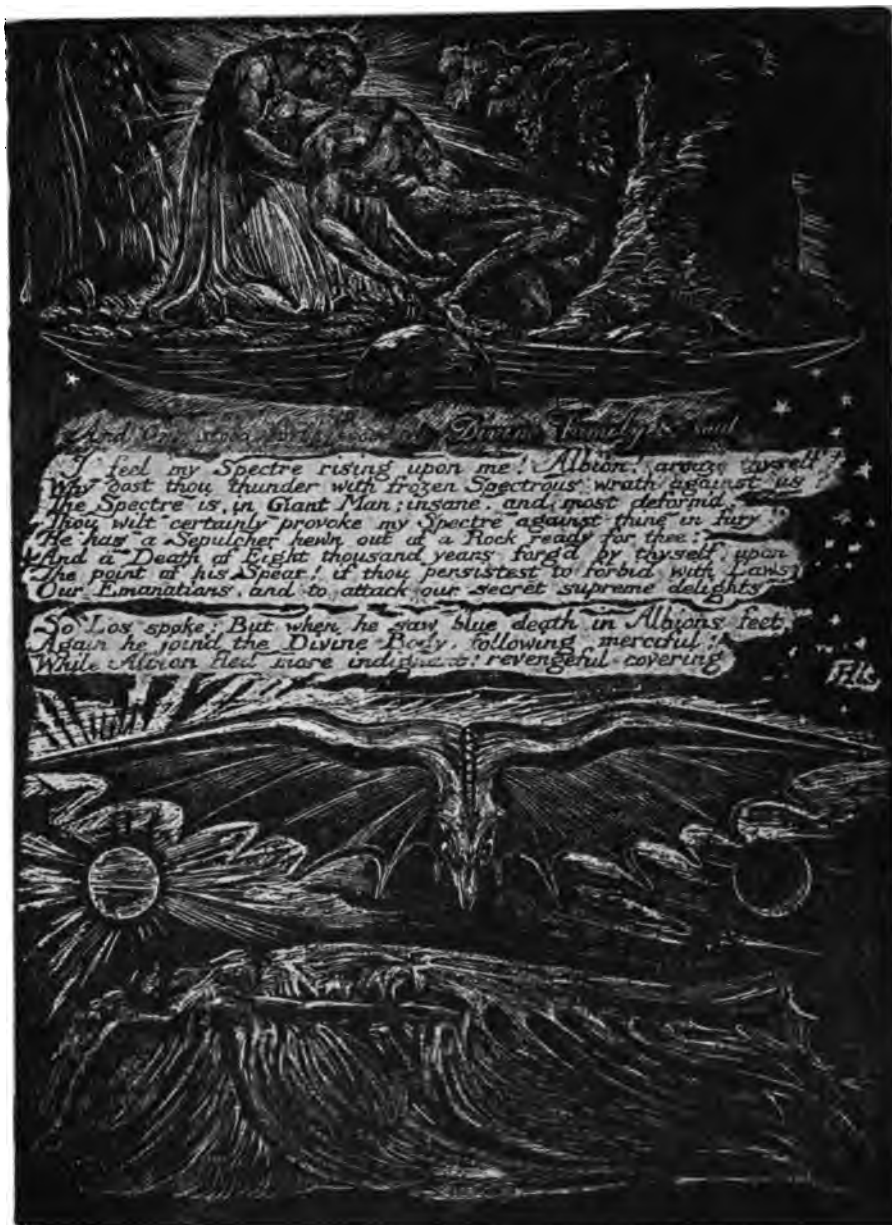 And One stood forth from the Divine Family & said
I feel my Spectre rising upon me! Albion! arouze thyself!
Why dost thou thunder with frozen Spectrous wrath against us?
The Spectre is, in Giant Man; insane, and most deform'd.
Thou wilt certainly provoke my Spectre against thine in fury!
He has a Sepulcher hewn out of a Rock ready for thee:
And a Death of Eight thousand years forg'd by thyself, upon
The point of his Spear! if thou persistest to forbid with Laws
Our Emanations, and to attack our secret supreme delights
So Los spoke: But when he saw blue death in Albions feet,
Again he join'd the Divine Body, following merciful;
While Albion fled more indignant! revengeful covering